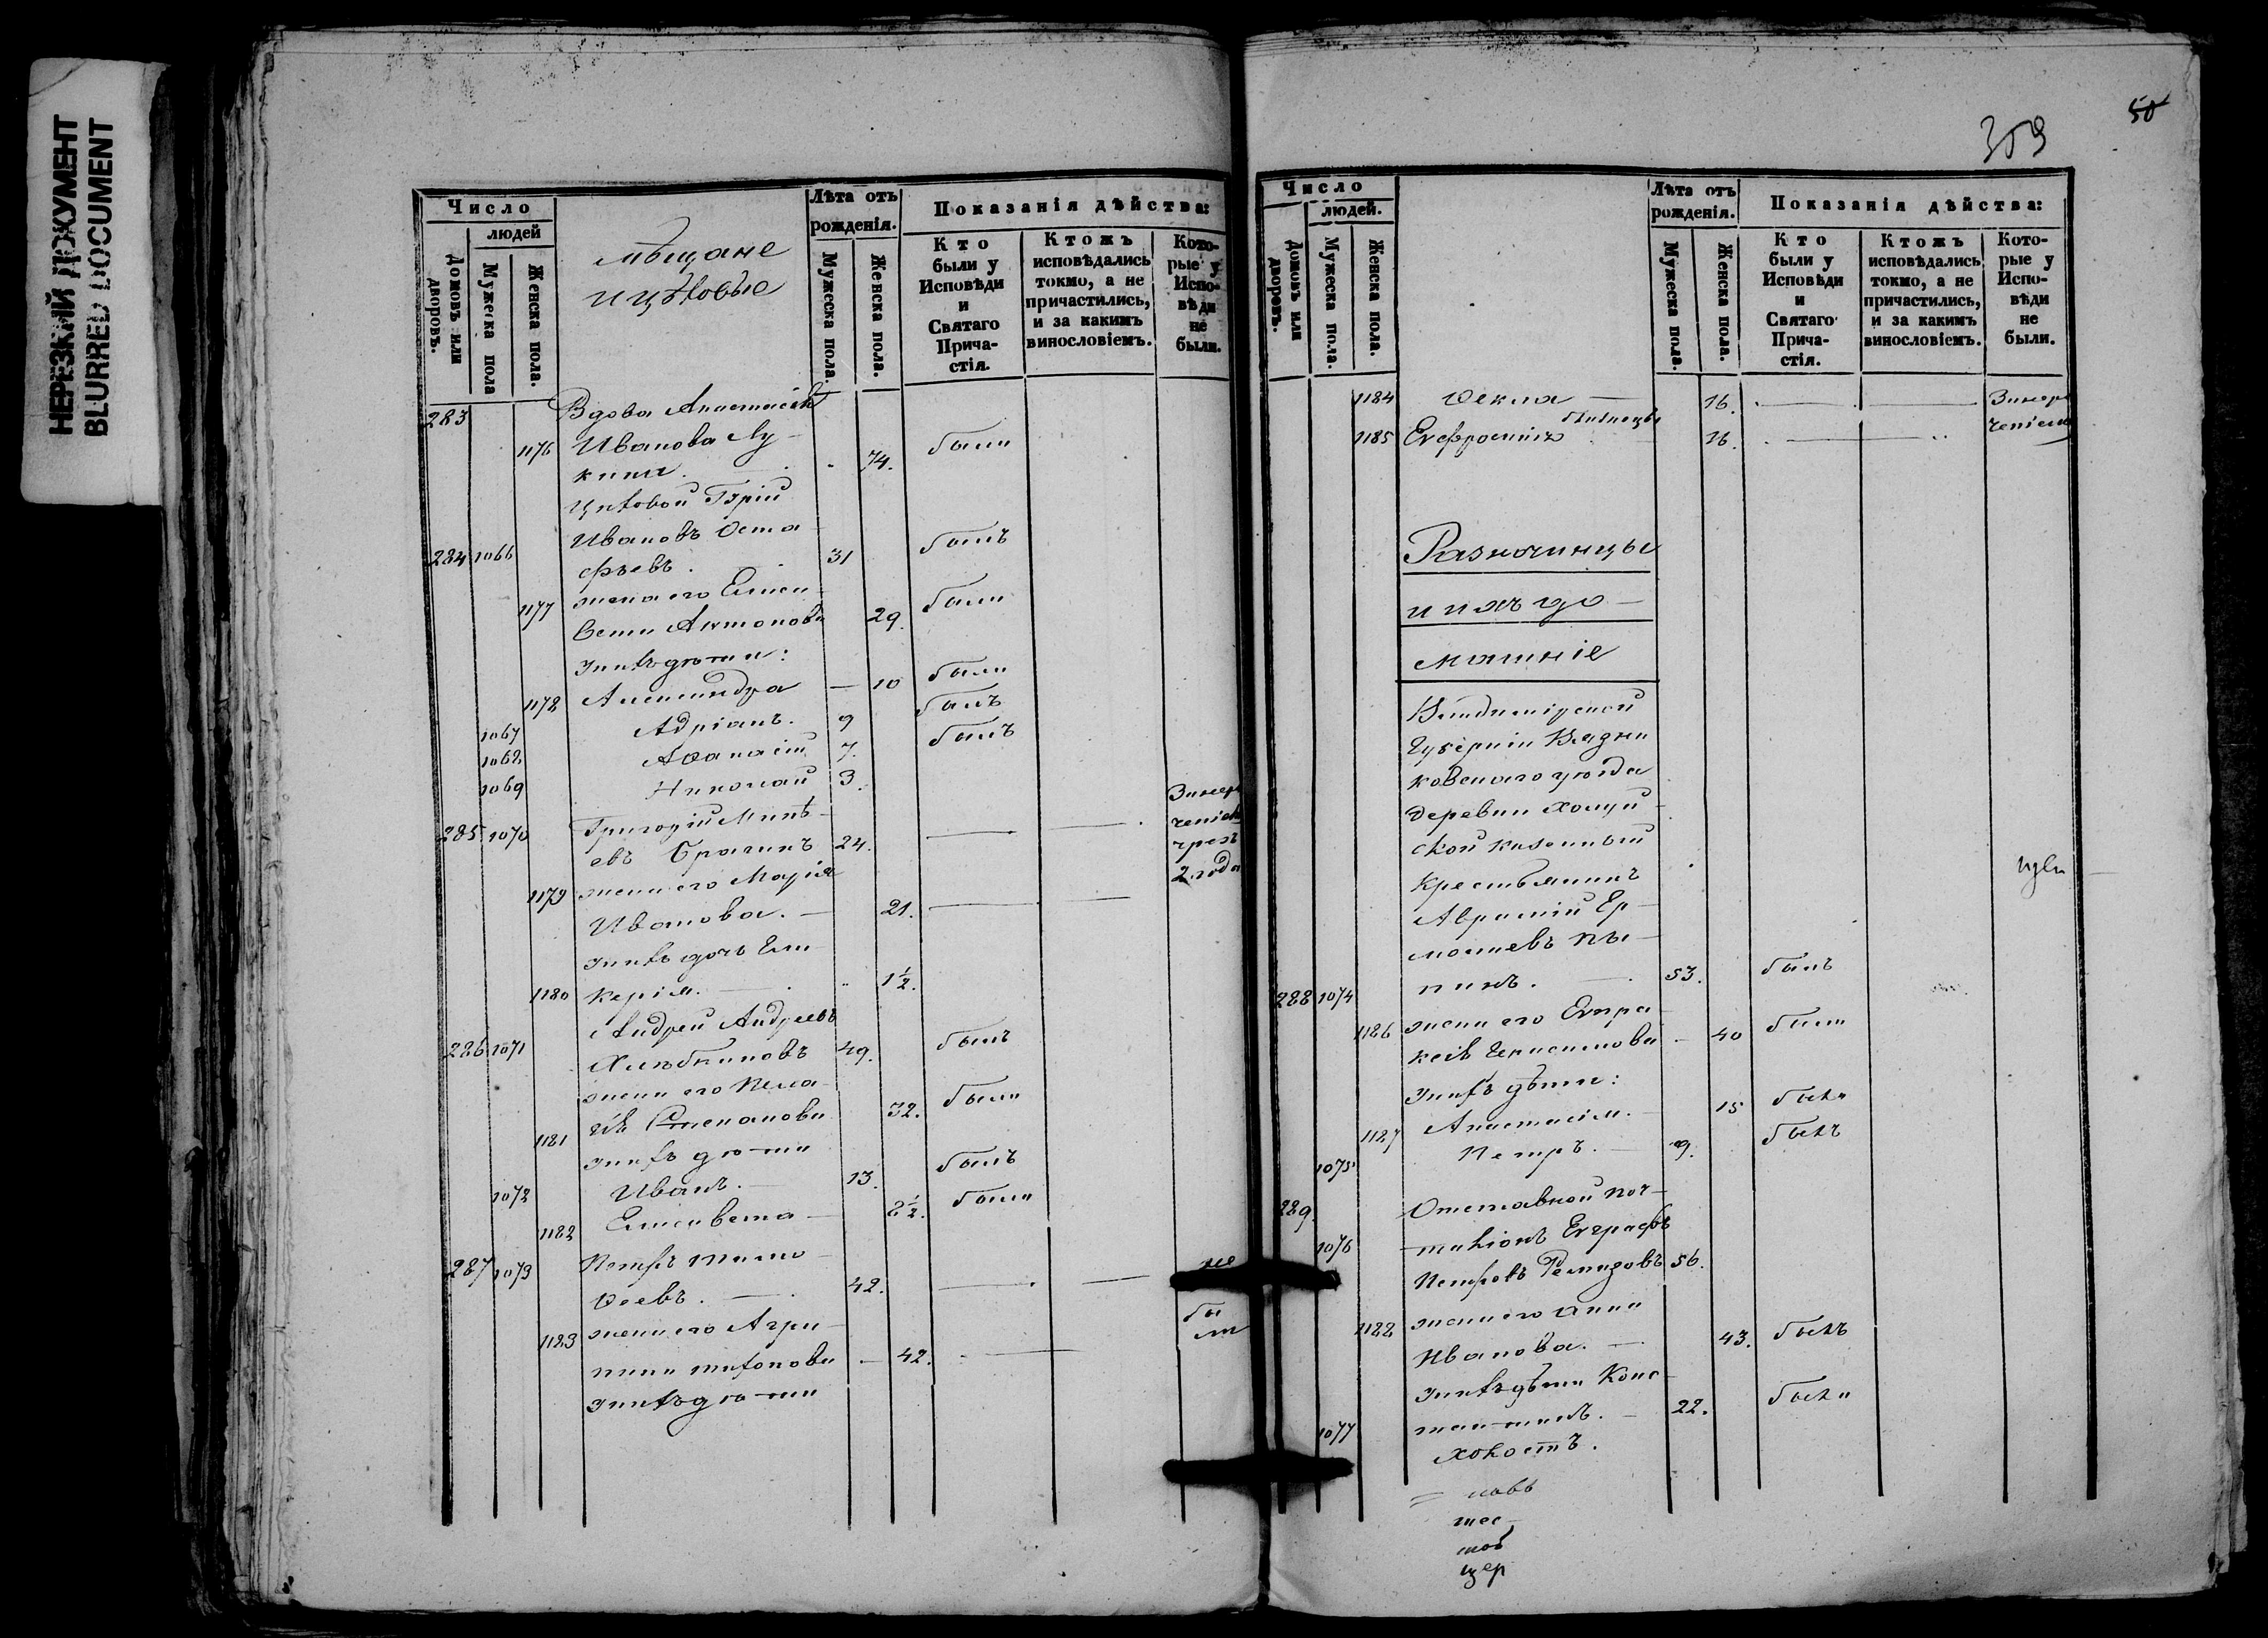 НЕРЕЗКИЙ ДОКУМЕНТ
BLURRED DOCUMENT
Число
людей
Домовъ или дворовъ.
Мужеска пола
Женска пола.
мѣщане
и цѣховые
Лѣта отъ рожденія.
Мужеска пола.
Женска пола.
Показанія дѣйства:
Кто были у Исповѣди и Святаго Прича-стія.
Ктожъ исповѣдались токмо, а не причастились, и за какимъ винословіемъ.
Кото-рые у Испо-вѣди не были.
283 Вдова Анастасія
1176 Иванова Лу-
кина . 74. была
Цѣховой Гурій
Ивановъ Оста
284 1066 фьевъ . 31 былъ
1177 жена его Елиса
вета Антонова 29. была
У нихъ дѣти:
1178 Александра — 10 была
1067 Адріанъ. 9 былъ
1068 Аѳанасій 7. былъ
1069 Николай 3.
285 1070 Григорій Минѣ-
евъ Брагинъ 24.
чрез
2 года
1179 жена его Марія
Иванова. — 21.
У нихъ дочь Гли
1180 керія. 1½.
Андрей Андреевъ
286 1071 Хлѣбниковъ 49. былъ
жена его Пела-
1181 гія Степанова 32. была
У нихъ дѣти
1072 Иванъ. — 13. былъ
1182 Елисавета — 8½. была
287 1073 Петръ Тимо
ѳеевъ . 42.
не
бы
ли
1183 жена его Агри-
пина Тихонова — 42.
У нихъ дѣти
309
50
Число
людей.
Домовъ или дворовъ.
Мужеска пола.
Женска пола.
Лѣта отъ рожденія.
Мужеска пола.
Женска пола.
Показанія дѣйства:
Кто были у Исповѣди и Святаго Прича-стія.
Ктожъ исповѣдались токмо, а не причастились, и за какимъ винословіемъ.
Кото-рые у Испо-вѣди не были.
1184 Ѳекла — 16.
близнецы
1185 Евфросинія 16.
Разночинцы
и ихъ до-
машніе
Владимірской
Губерніи Вязни
ковскаго уѣзда
деревни Холуй-
ской казенный
Крестьянинъ
Аврамій Ер-
молаевъ Пы-
288 1074 пинъ. 53. былъ
1186 жена его Евпра-
ксія Герасимова — 40 была
У нихъ дѣти:
1187 Анастасія. — 15 была
1075 Петръ. — 9. былъ
289. Отставной поч-
1076 таліонъ Евграфъ
Петровъ Ремизовъ 56.
1188 жена его Анна
Иванова. — 43. былъ
У нихъ дѣти Конс-
1077 тантинъ. — 22. была
холостъ.